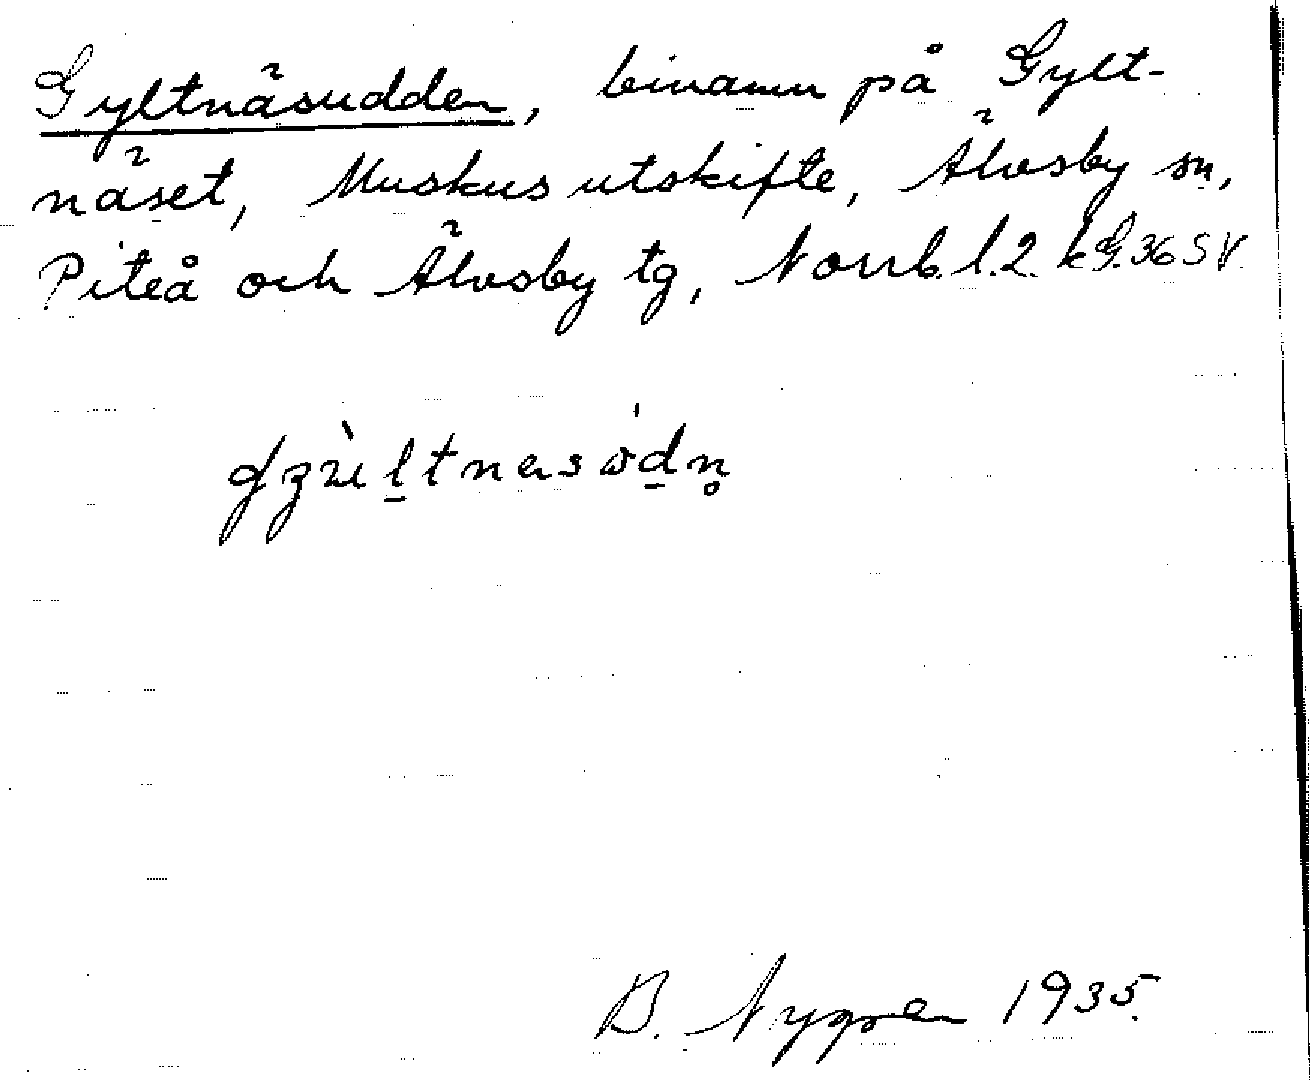 Gyltnäsudden, binamn på Gylt-
näset, Muskus utskifte, Älvsby sn,
Piteå och Älvsby tg, Norrb. l. 2. kG. 36 SV.
B. Nygren 1935.